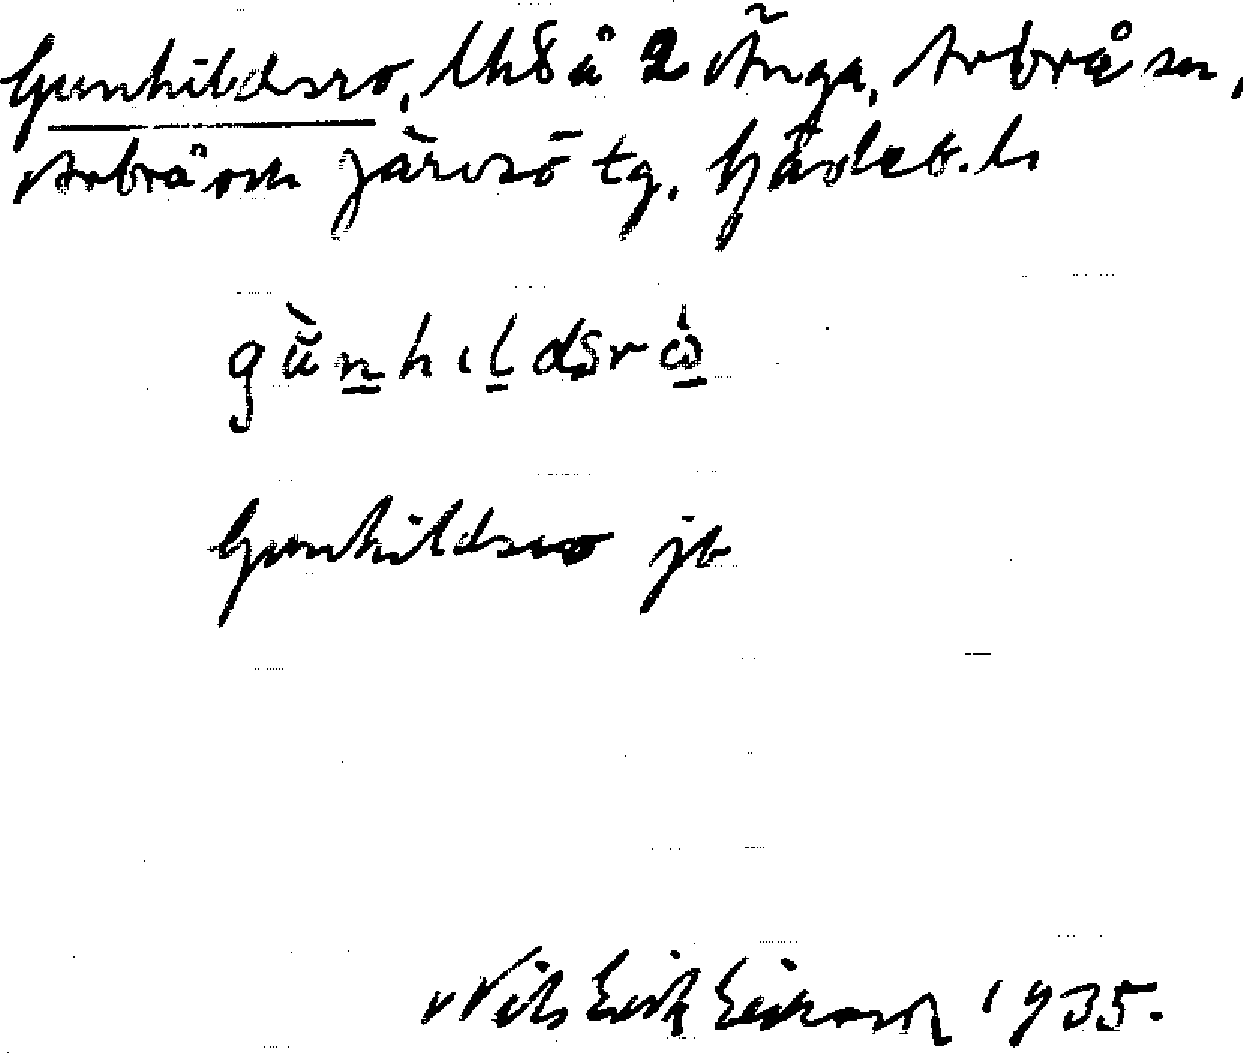 Gunhildsro, lh 8å 2 Änga, Arbrå sn,
Arbrå och Järvsö tg. Gävleb. l.
gùn̲hıl̲dsrω̲̇
Gunhildsro jb
Nils Erik Eriksson 1935.